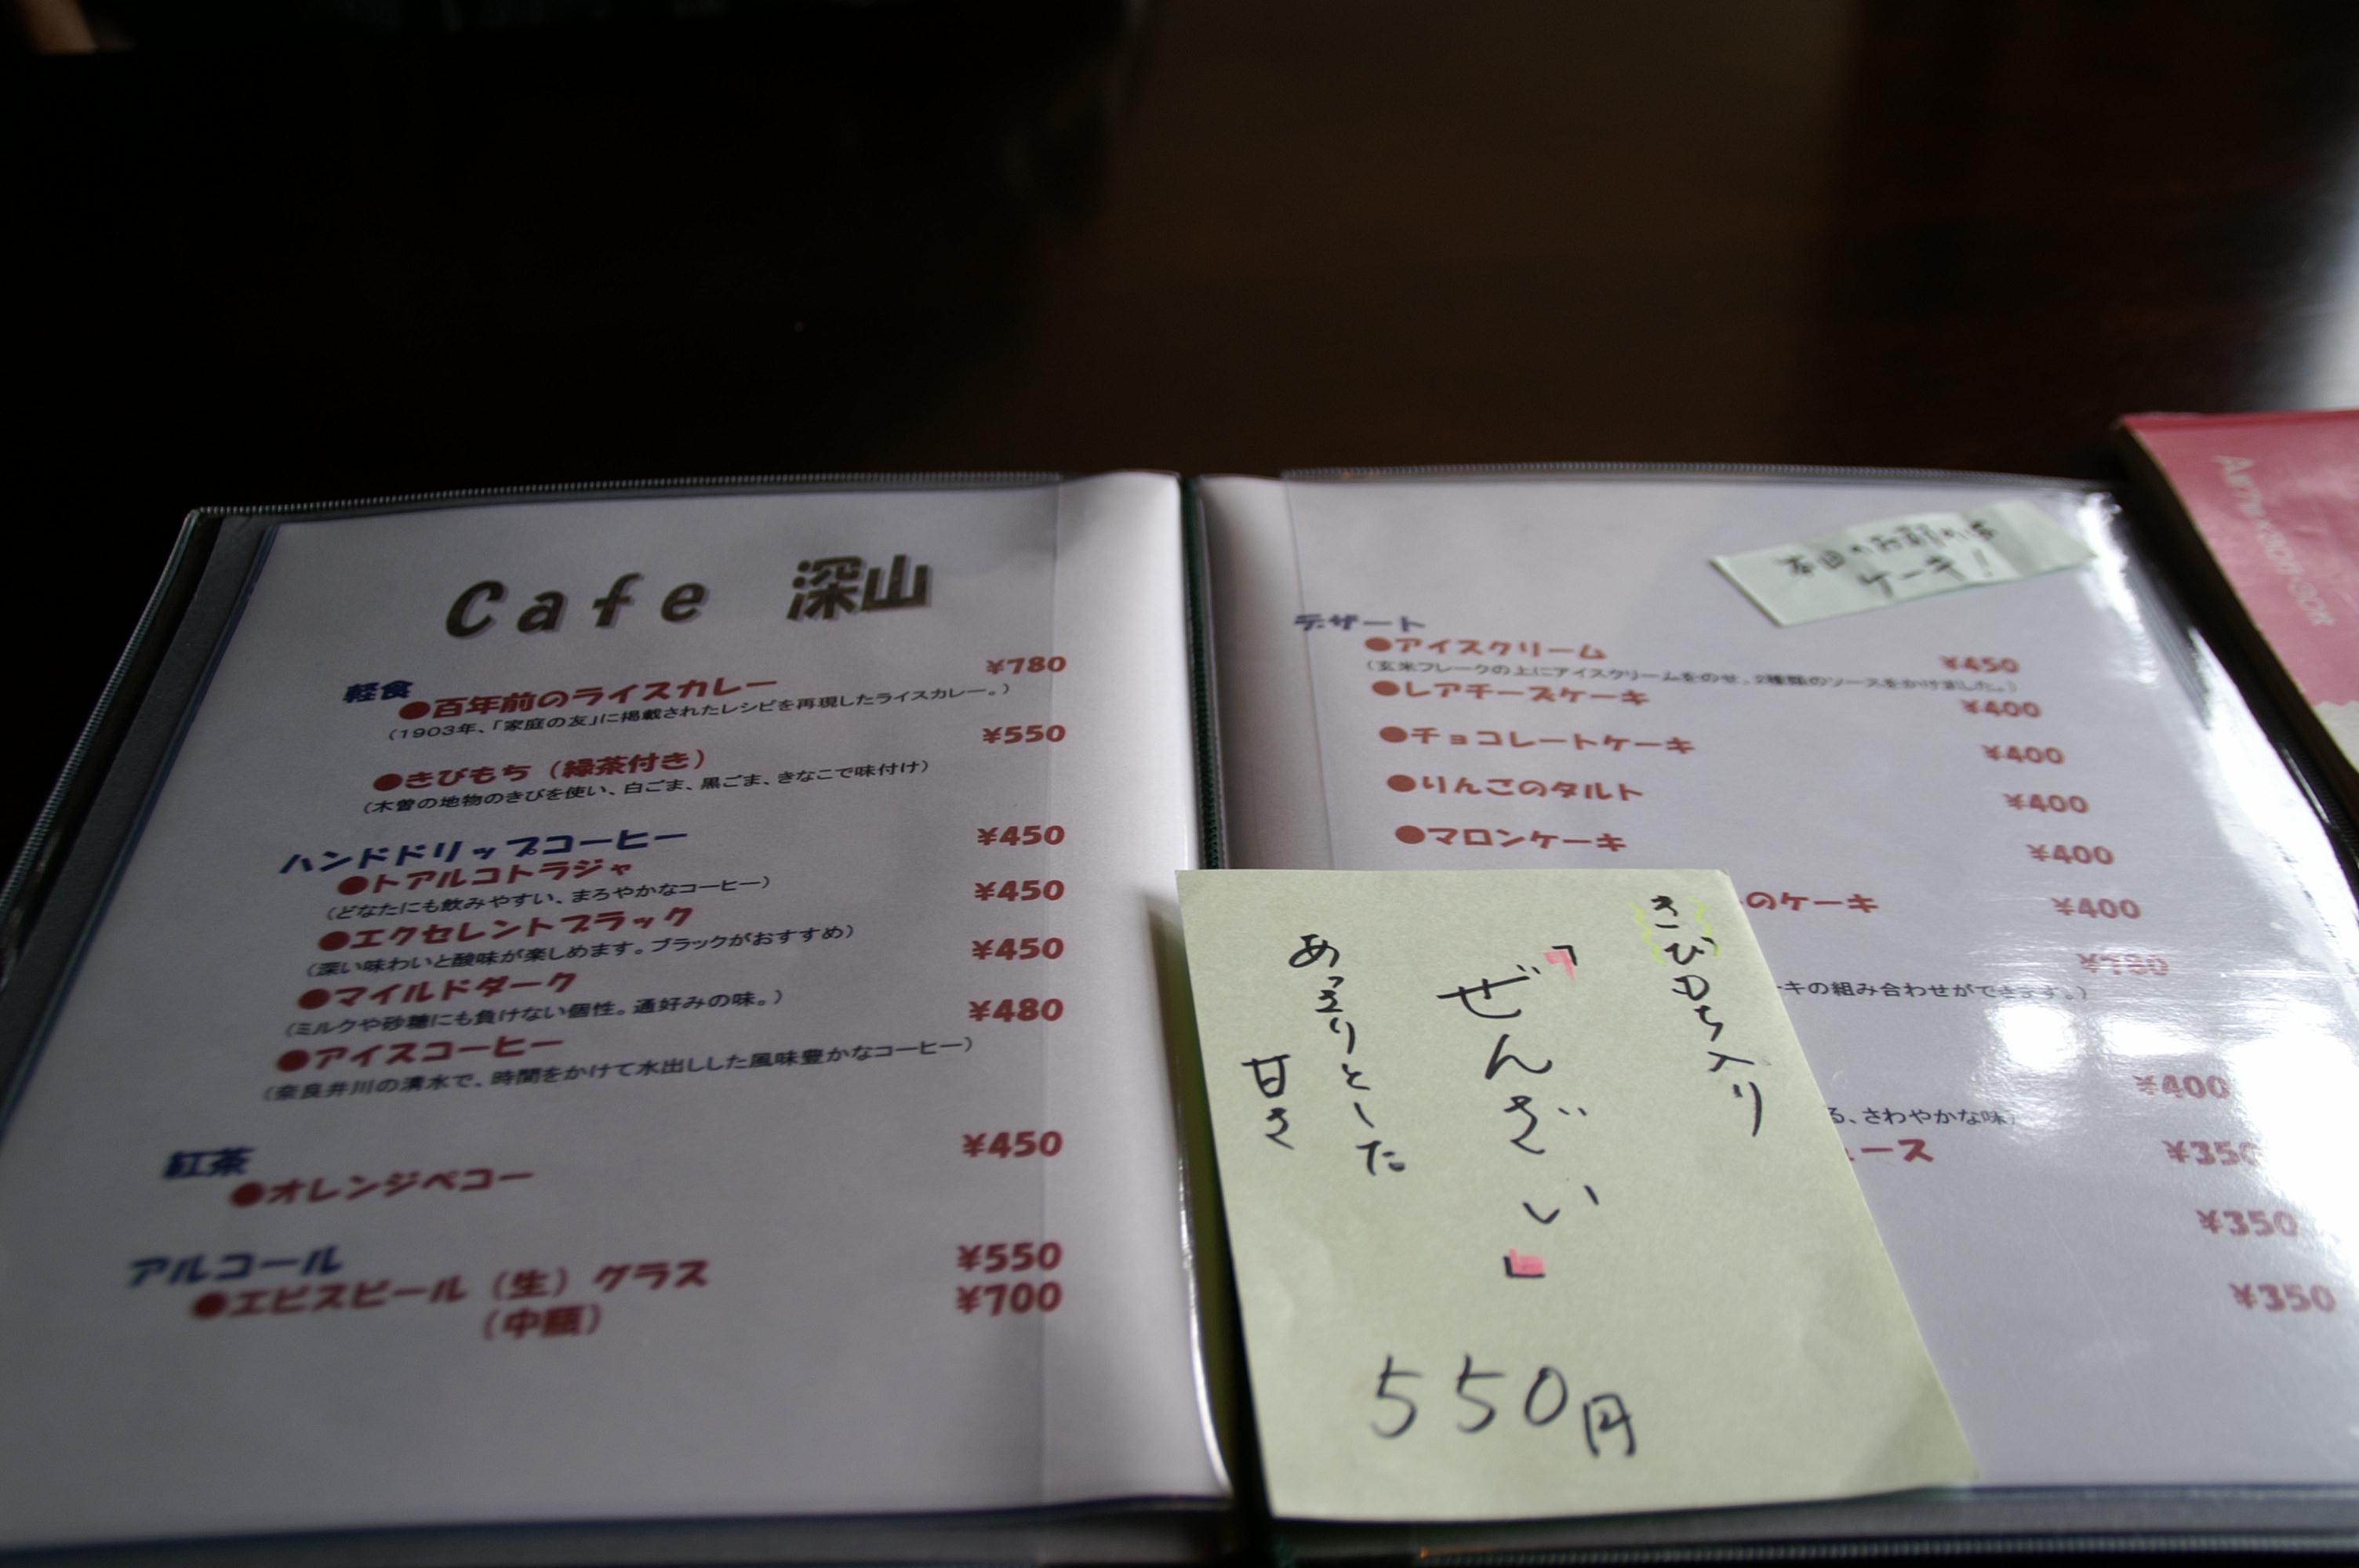 Cafe 深山
軽食
●百年前のライスカレー ¥780
(1903年、「家庭の友」に掲載されたレシピを再現したライスカレー。)
●きびもち(緑茶付き) ¥550
(木曽の地物のきびを使い、白ごま、黒ごま、きなこで味付け)
ハンドドリップコーヒー
●トアルコトラジャ ¥450
(どなたにも飲みやすい、まろやかなコーヒー)
●エクセレントブラック ¥450
(深い味わいと酸味が楽しめます。ブラックがおすすめ)
●マイルドダーク ¥450
(ミルクや砂糖にも負けない個性。通好みの味。)
●アイスコーヒー ¥480
(奈良井川の清水で、時間をかけて水出しした風味豊かなコーヒー)
紅茶
●オレンジペコー ¥450
アルコール
●エビスビール(生)グラス ¥550
(中瓶) ¥700
ケーキ!
デザート
●アイスクリーム ¥450
(玄米フレークの上にアイスクリームをのせ、2種類のソースをかけました。)
●レアチーズケーキ ¥400
●チョコレートケーキ ¥400
●りんごのタルト ¥400
●マロンケーキ ¥400
のケーキ ¥400
ーキの組み合わせができます。)
¥400
る、さわやかな味)
ュース ¥350
¥350
¥350
きびもち入り
『ぜんざい』
あっさりとした
甘さ
550円